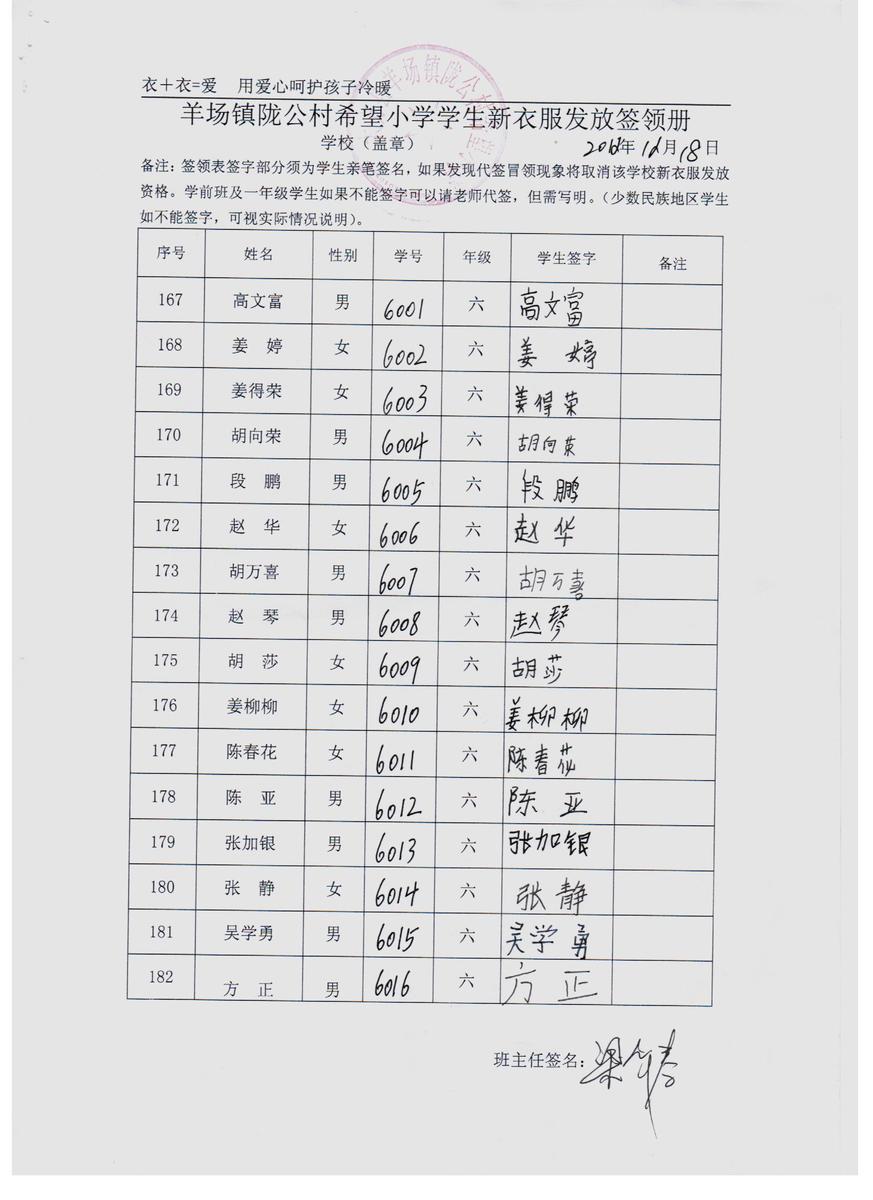 衣＋衣=爱 用爱心呵护孩子冷暖
羊场镇陇公村希望小学学生新衣服发放签领册
学校（盖章） 年12月18日
备注：签领表签字部分须为学生亲笔签名，如果发现代签冒领现象将取消该学校新衣服发放
资格。学前班及一年级学生如果不能签字可以请老师代签，但需写明。（少数民族地区学生
如不能签字，可视实际情况说明）。
序号 姓名 性别 学号 年级 学生签字 备注
167 高文富 男 6001 六 高文富
168 姜 婷 女 6002 六 姜 婷
169 姜得荣 女 6003 六 姜得荣
170 胡向荣 男 6004 六 胡向荣
171 段 鹏 男 6005 六 段 鹏
172 赵 华 女 6006 六 赵 华
173 胡万喜 男 6007 六 胡万喜
174 赵 琴 男 6008 六 赵琴
175 胡 莎 女 6009 六 胡莎
176 姜柳柳 女 6010 六 姜柳柳
177 陈春花 女 6011 六 陈春花
178 陈 亚 男 6012 六 陈 亚
179 张加银 男 6013 六 张加银
180 张 静 女 6014 六 张 静
181 吴学勇 男 6015 六 吴学勇
182 方 正 男 6016 六 方 正
班主任签名：